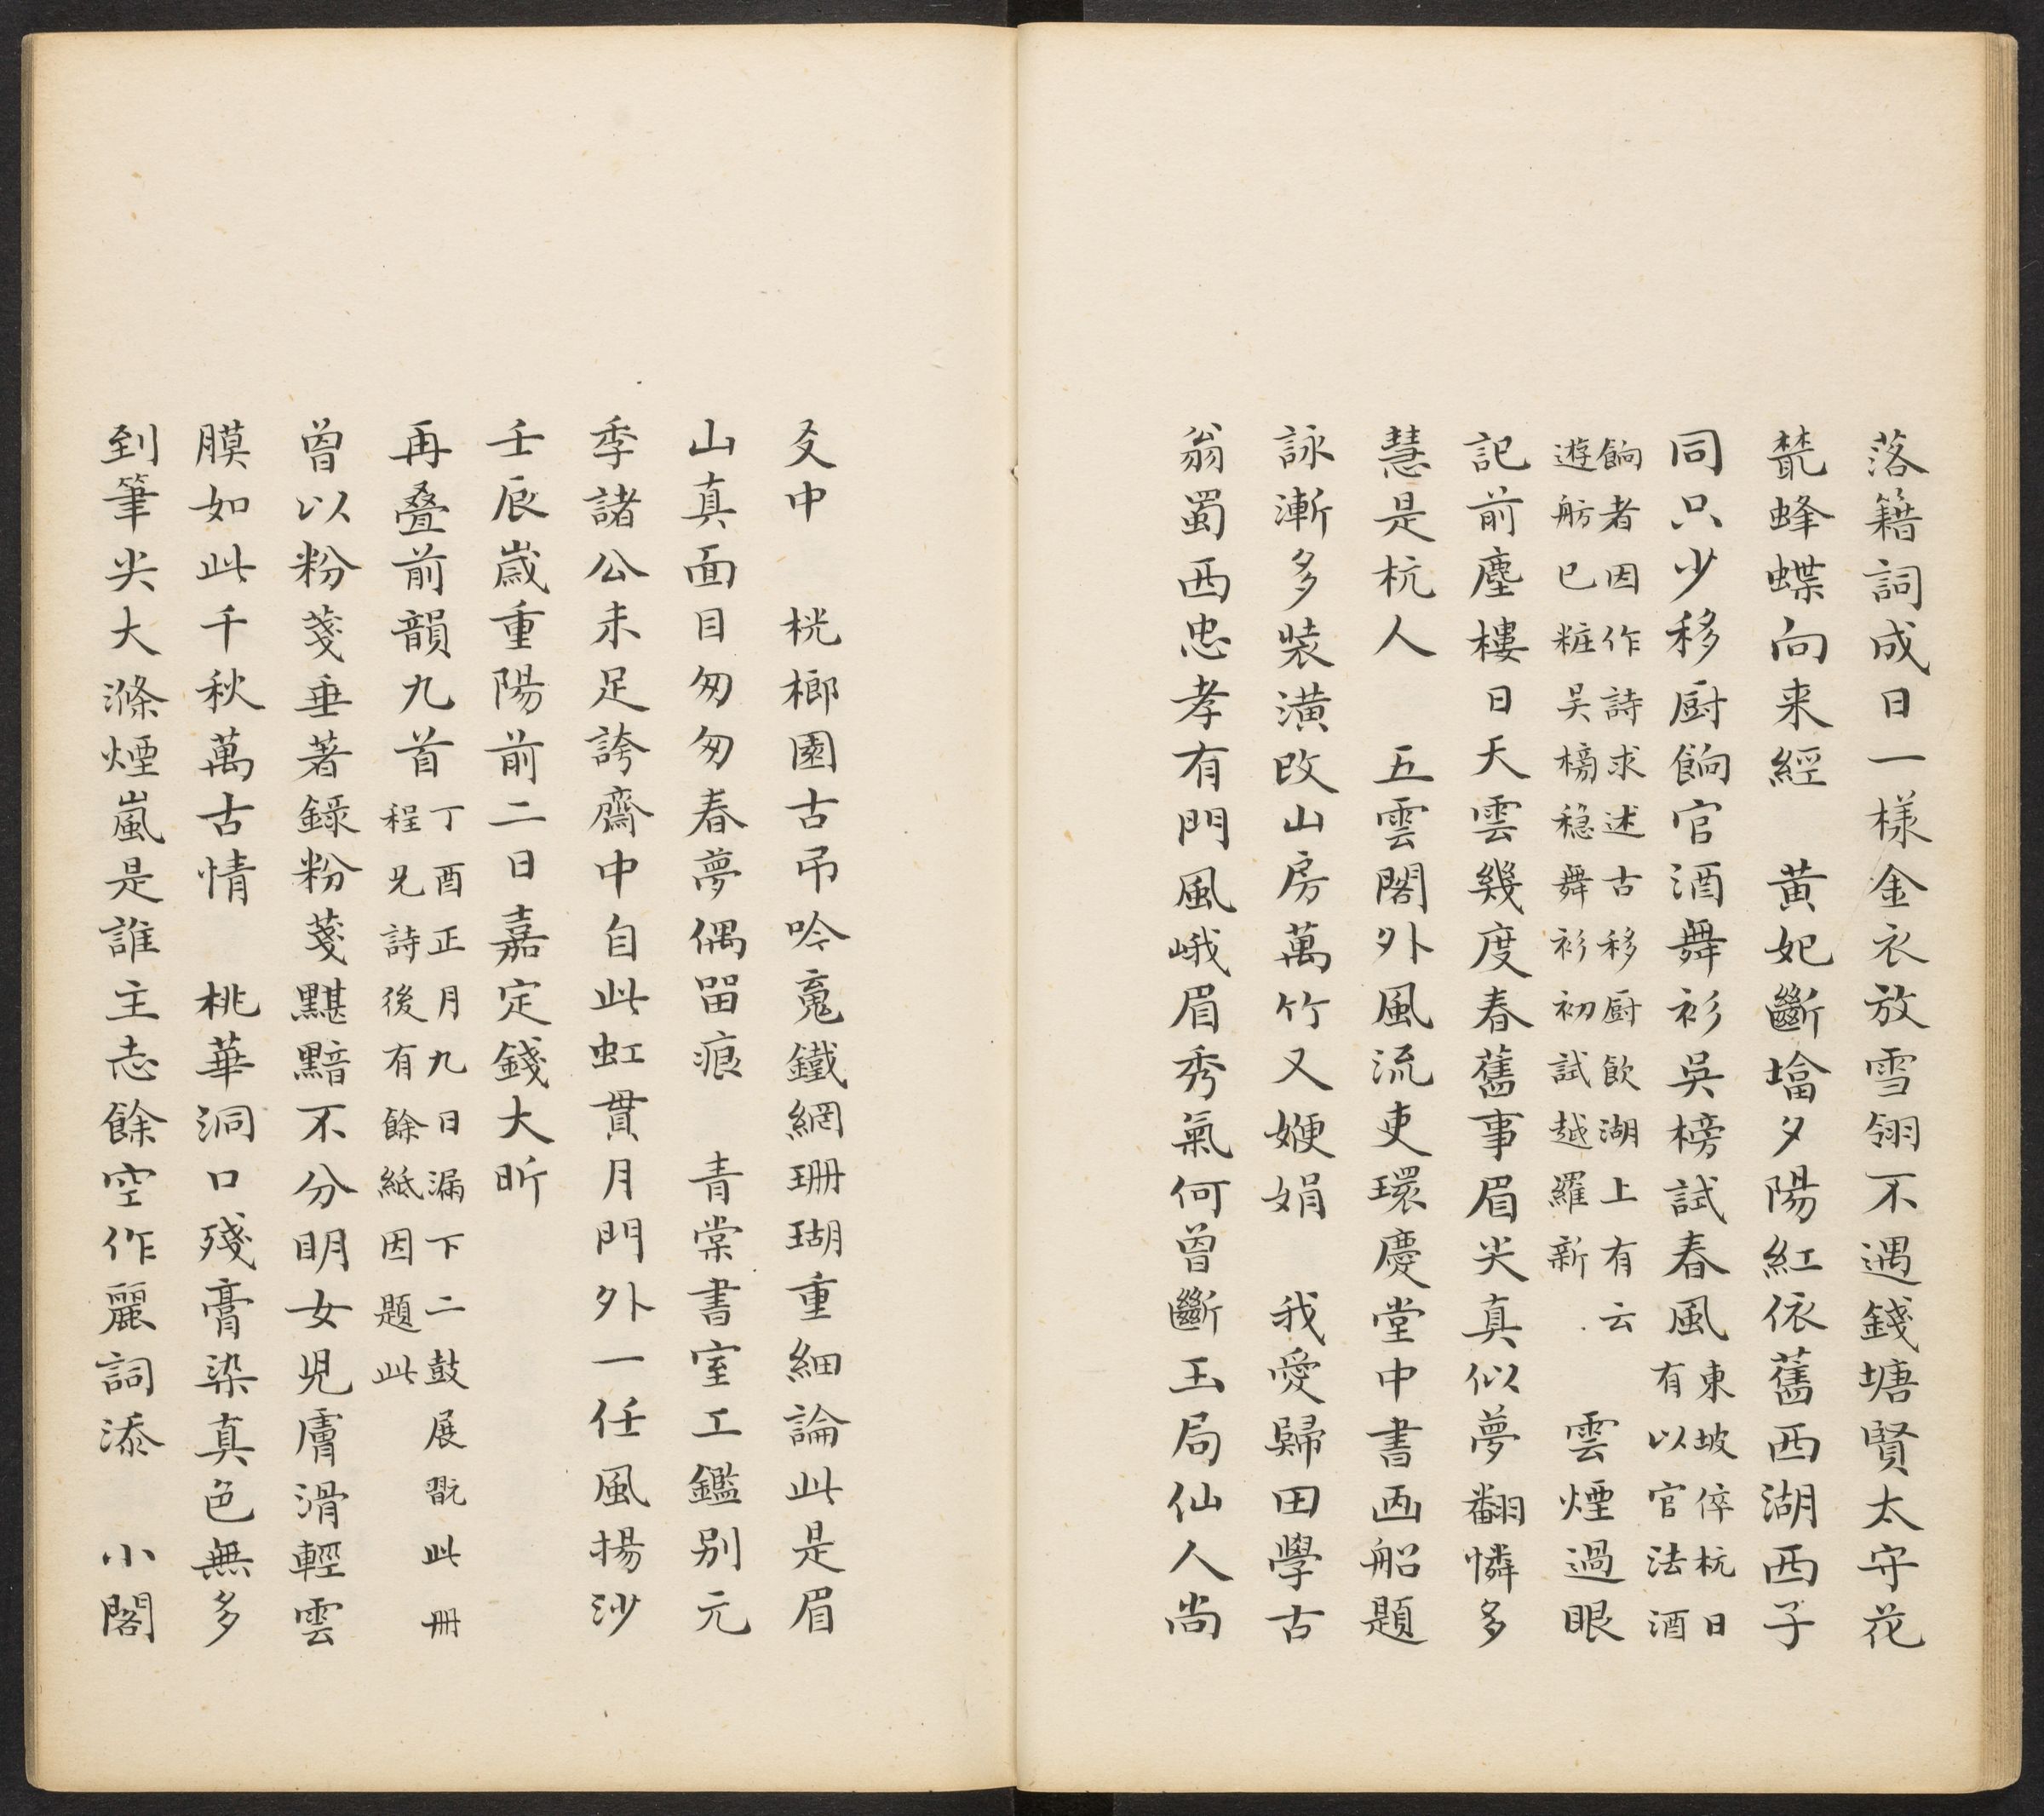 落籍詞成日一樣金衣放雪翎不遇錢塘賢太守花
蜂蝶向来經　黄妃斷墖夕陽紅依舊西湖西子
同只少移厨餉官酒舞衫吳榜試春風東坡倅杭日
有以官法酒
餉者因作詩求述古移厨飲湖上有云
遊舫已粧吴榜稳舞衫初試越羅新　雲煙過眼
記前塵樓日天雲幾度春舊事眉尖真似夢翻憐多
慧是杭人　五雲閣外風流吏環慶堂中書画船題
詠漸多裝潢改山房萬竹又娛娟　我愛歸田學古
翁蜀西忠孝有門風峨眉秀氣何曾斷玉局仙人尚
友中　桄榔園古弔吟䰟鐵網珊瑚重細論此是眉
山真面目匆匆春夢偶留痕　青棠書室工鑑别元
季諸公未足誇齋中自此虹貫月門外一任風揚沙
壬辰歲重陽前二日嘉定錢大昕
再叠前韻九首丁酉正月九日漏下二鼓展翫此冊
程兄詩後有餘紙因題此
曾以粉箋垂著錄粉箋黮黯不分明女児膚滑輕雲
膜如此千秋萬古情　桃華洞口殘膏染真色無多
到筆尖大滌煙嵐是誰主志餘空作麗詞添　小閣